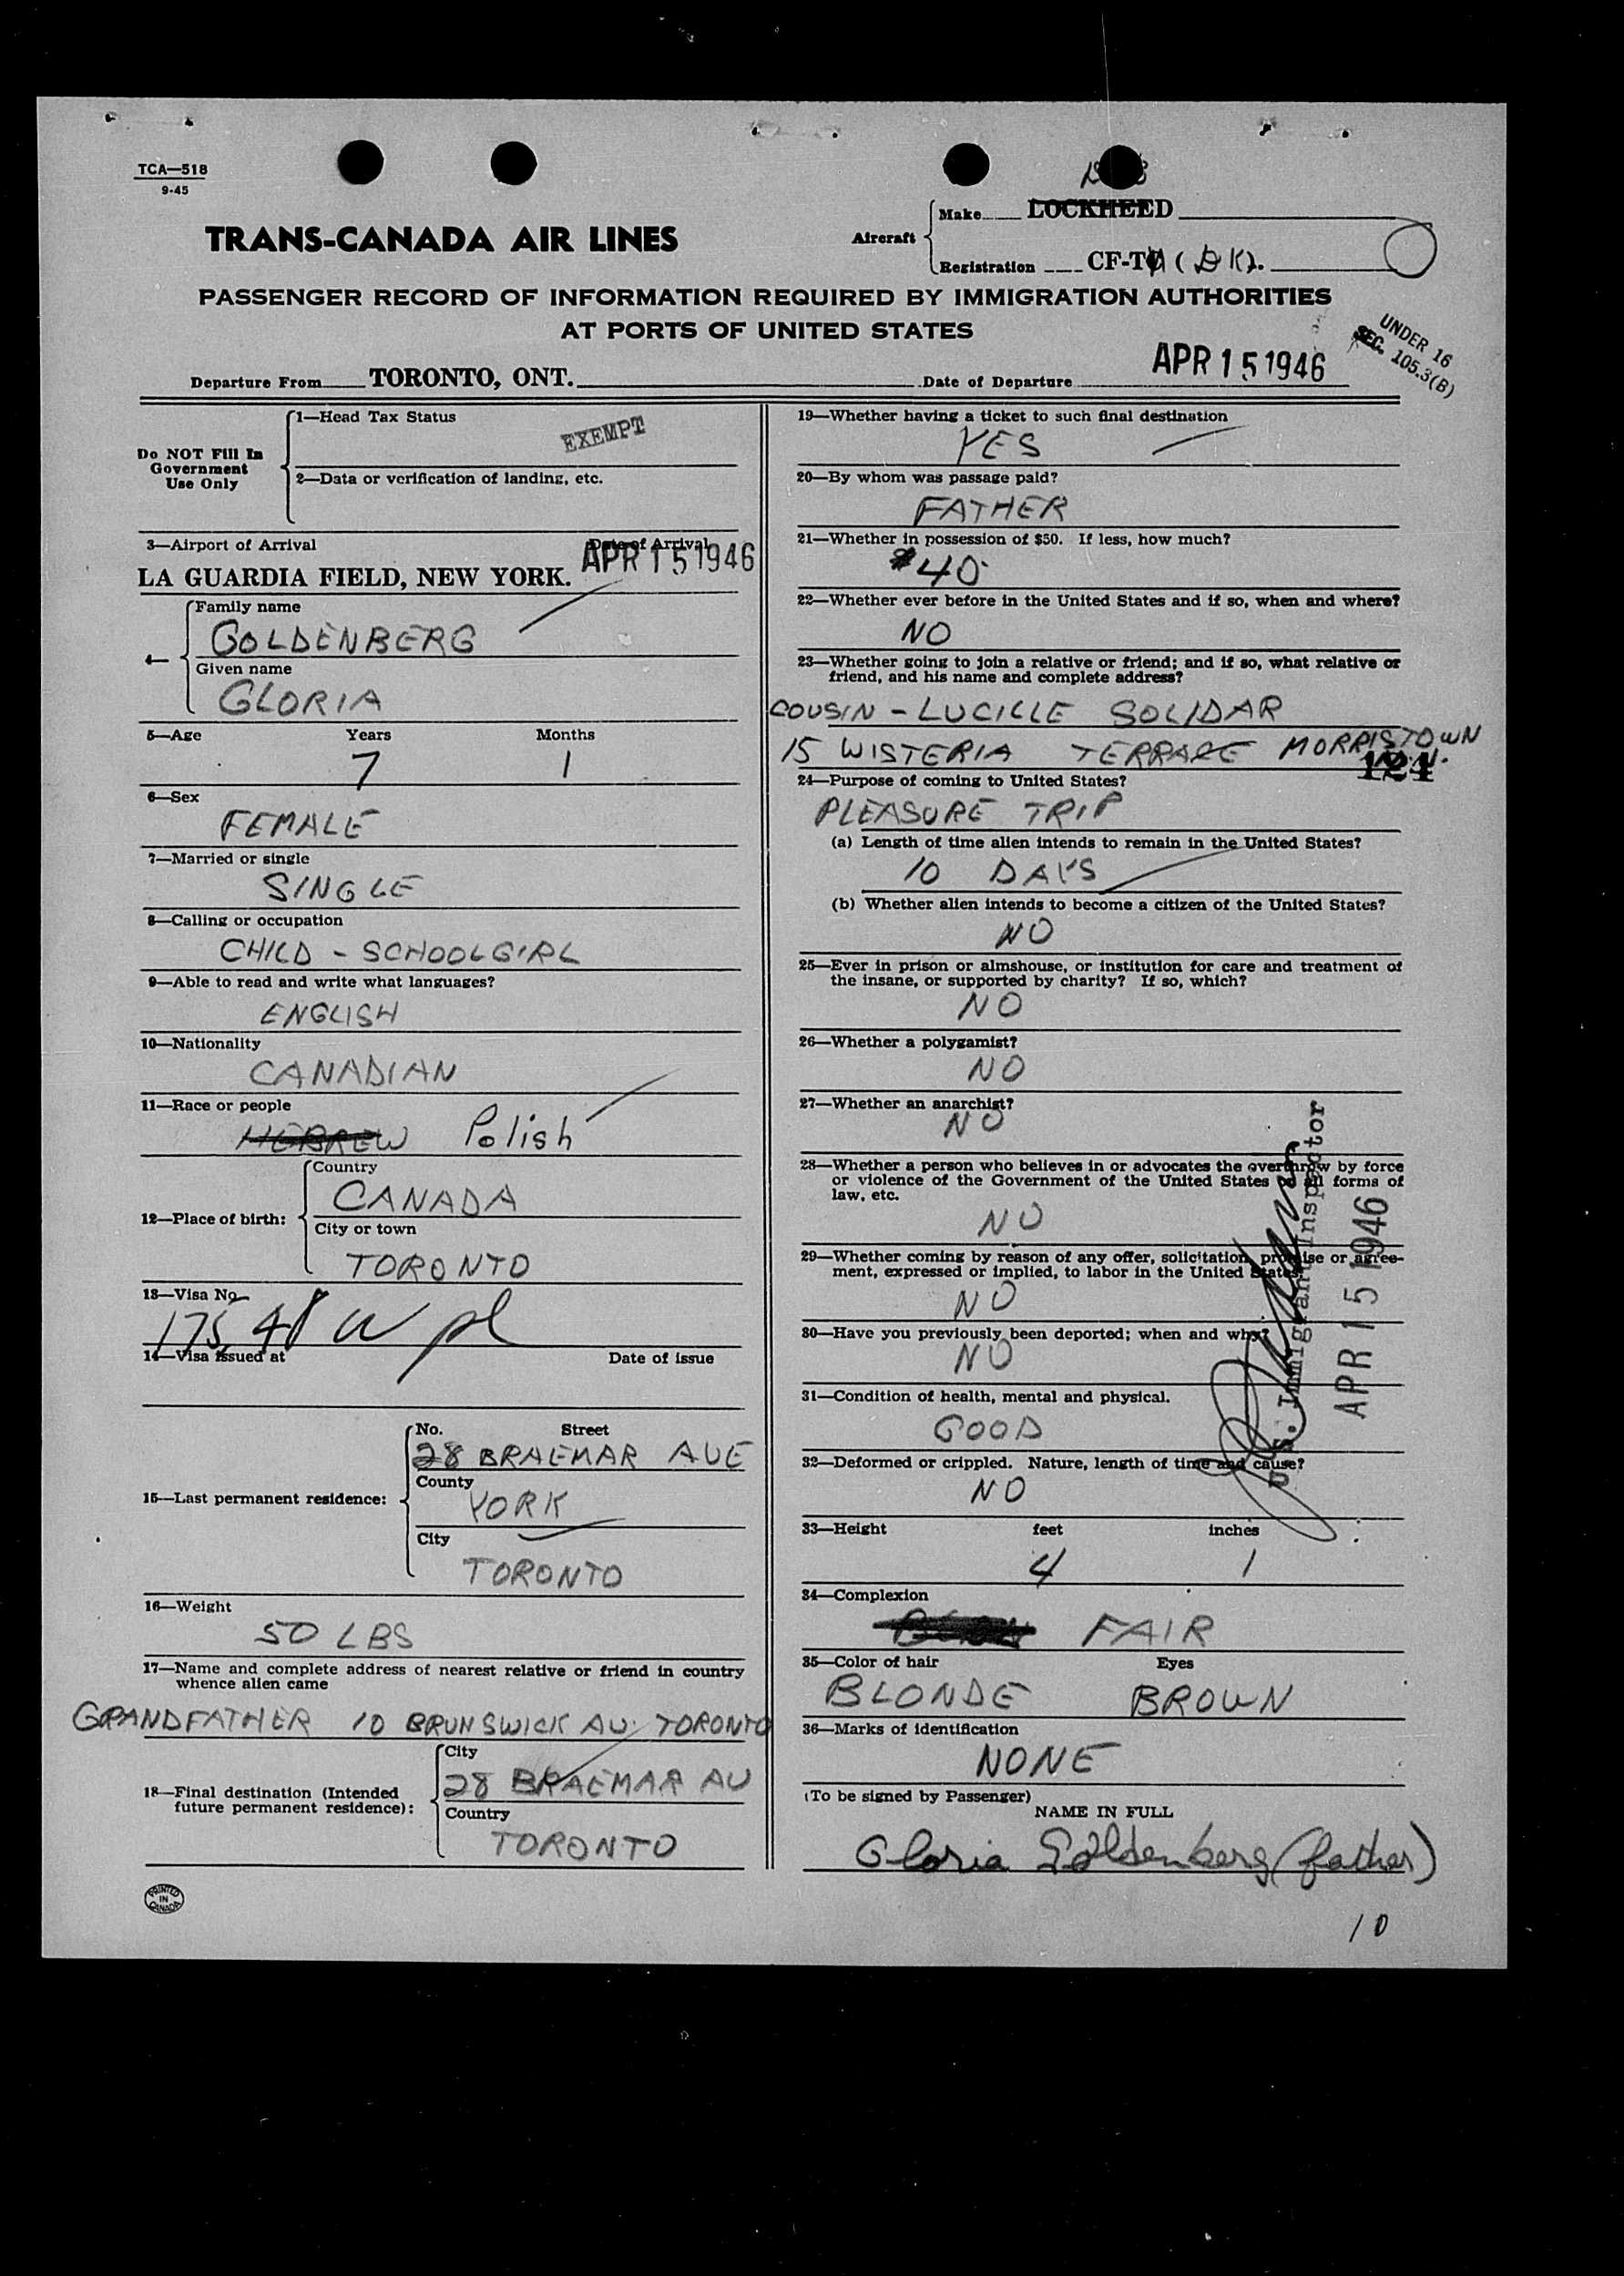 TCA—518
9-45
TRANS-CANADA AIR LINES
Aircraft
Make LOCKHEED
Registration CF-T (DK).
PASSENGER RECORD OF INFORMATION REQUIRED BY IMMIGRATION AUTHORITIES
AT PORTS OF UNITED STATES
UNDER 16
SEC. 105.3(B)
Departure From TORONTO, ONT. Date of Departure APR 15 1946
Do NOT Fill In
Government
Use Only
1—Head Tax Status
EXEMPT
2—Data or verification of landing, etc.
3—Airport of Arrival Date of Arrival
LA GUARDIA FIELD, NEW YORK. APR 15 1946
4—
Family name
GOLDENBERG
Given name
GLORIA
5—Age Years Months
7 1
6—Sex
FEMALE
7—Married or single
SINGLE
8—Calling or occupation
CHILD - SCHOOLGIRL
9—Able to read and write what languages?
ENGLISH
10—Nationality
CANADIAN
11—Race or people
HEBREW Polish
12—Place of birth:
Country
CANADA
City or town
TORONTO
13—Visa No.
14—Visa issued at Date of issue
15—Last permanent residence:
No. Street
28 BRAEMAR AVE
County
YORK
City
TORONTO
16—Weight
50 LBS
17—Name and complete address of nearest relative or friend in country
whence alien came
GRANDFATHER 10 BRUNSWICK AV. TORONTO
18—Final destination (Intended
future permanent residence):
City
28 BRAEMAR AV
Country
TORONTO
PRINTED
IN
CANADA
19—Whether having a ticket to such final destination
YES
20—By whom was passage paid?
FATHER
21—Whether in possession of $50. If less, how much?
$40
22—Whether ever before in the United States and if so, when and where?
NO
23—Whether going to join a relative or friend; and if so, what relative or
friend, and his name and complete address?
COUSIN - LUCILLE SOLIDAR
15 WISTERIA TERRACE MORRISTOWN
124
24—Purpose of coming to United States?
PLEASURE TRIP
(a) Length of time alien intends to remain in the United States?
10 DAYS
(b) Whether alien intends to become a citizen of the United States?
NO
25—Ever in prison or almshouse, or institution for care and treatment of
the insane, or supported by charity? If so, which?
NO
26—Whether a polygamist?
NO
27—Whether an anarchist?
NO
28—Whether a person who believes in or advocates the overthrow by force
or violence of the Government of the United States or all forms of
law, etc.
NO
29—Whether coming by reason of any offer, solicitation, promise or agree-
ment, expressed or implied, to labor in the United States?
NO
30—Have you previously been deported; when and why?
NO
31—Condition of health, mental and physical.
GOOD
U.S. Immigrant Inspector
APR 15 1946
32—Deformed or crippled. Nature, length of time and cause?
NO
33—Height feet inches
4 1
34—Complexion
FAIR
35—Color of hair Eyes
BLONDE BROWN
36—Marks of identification
NONE
(To be signed by Passenger)
NAME IN FULL
Gloria Goldenberg (father)
10